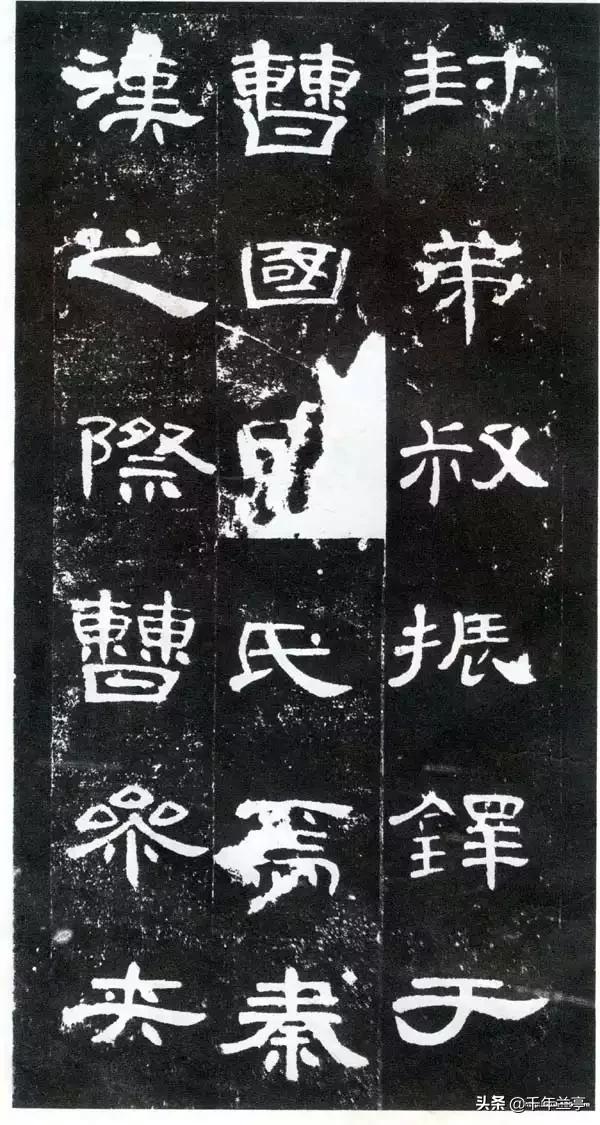 封弟叔振鐸于
曹國氏焉秦
漢之際曹參夾
头条 @千年兰亭